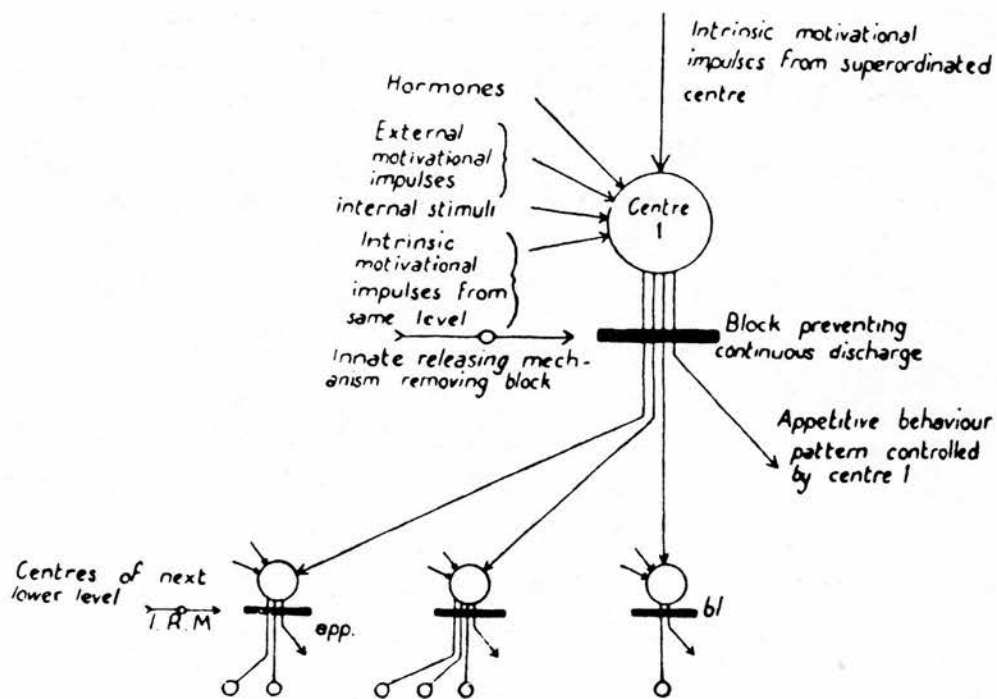 Intrinsic motivational
impulses from superordinated
centre
Hormones
External
motivational
impulses
internal stimuli
Intrinsic
motivational
impulses from
same level
Centre
1
Innate releasing mech-
anism removing block
Block preventing
continuous discharge
Appetitive behaviour
pattern controlled
by centre 1
Centres of next
lower level
I.R.M
app.
bl